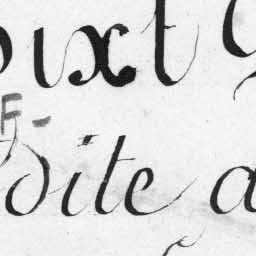 pixt
F-
dite a